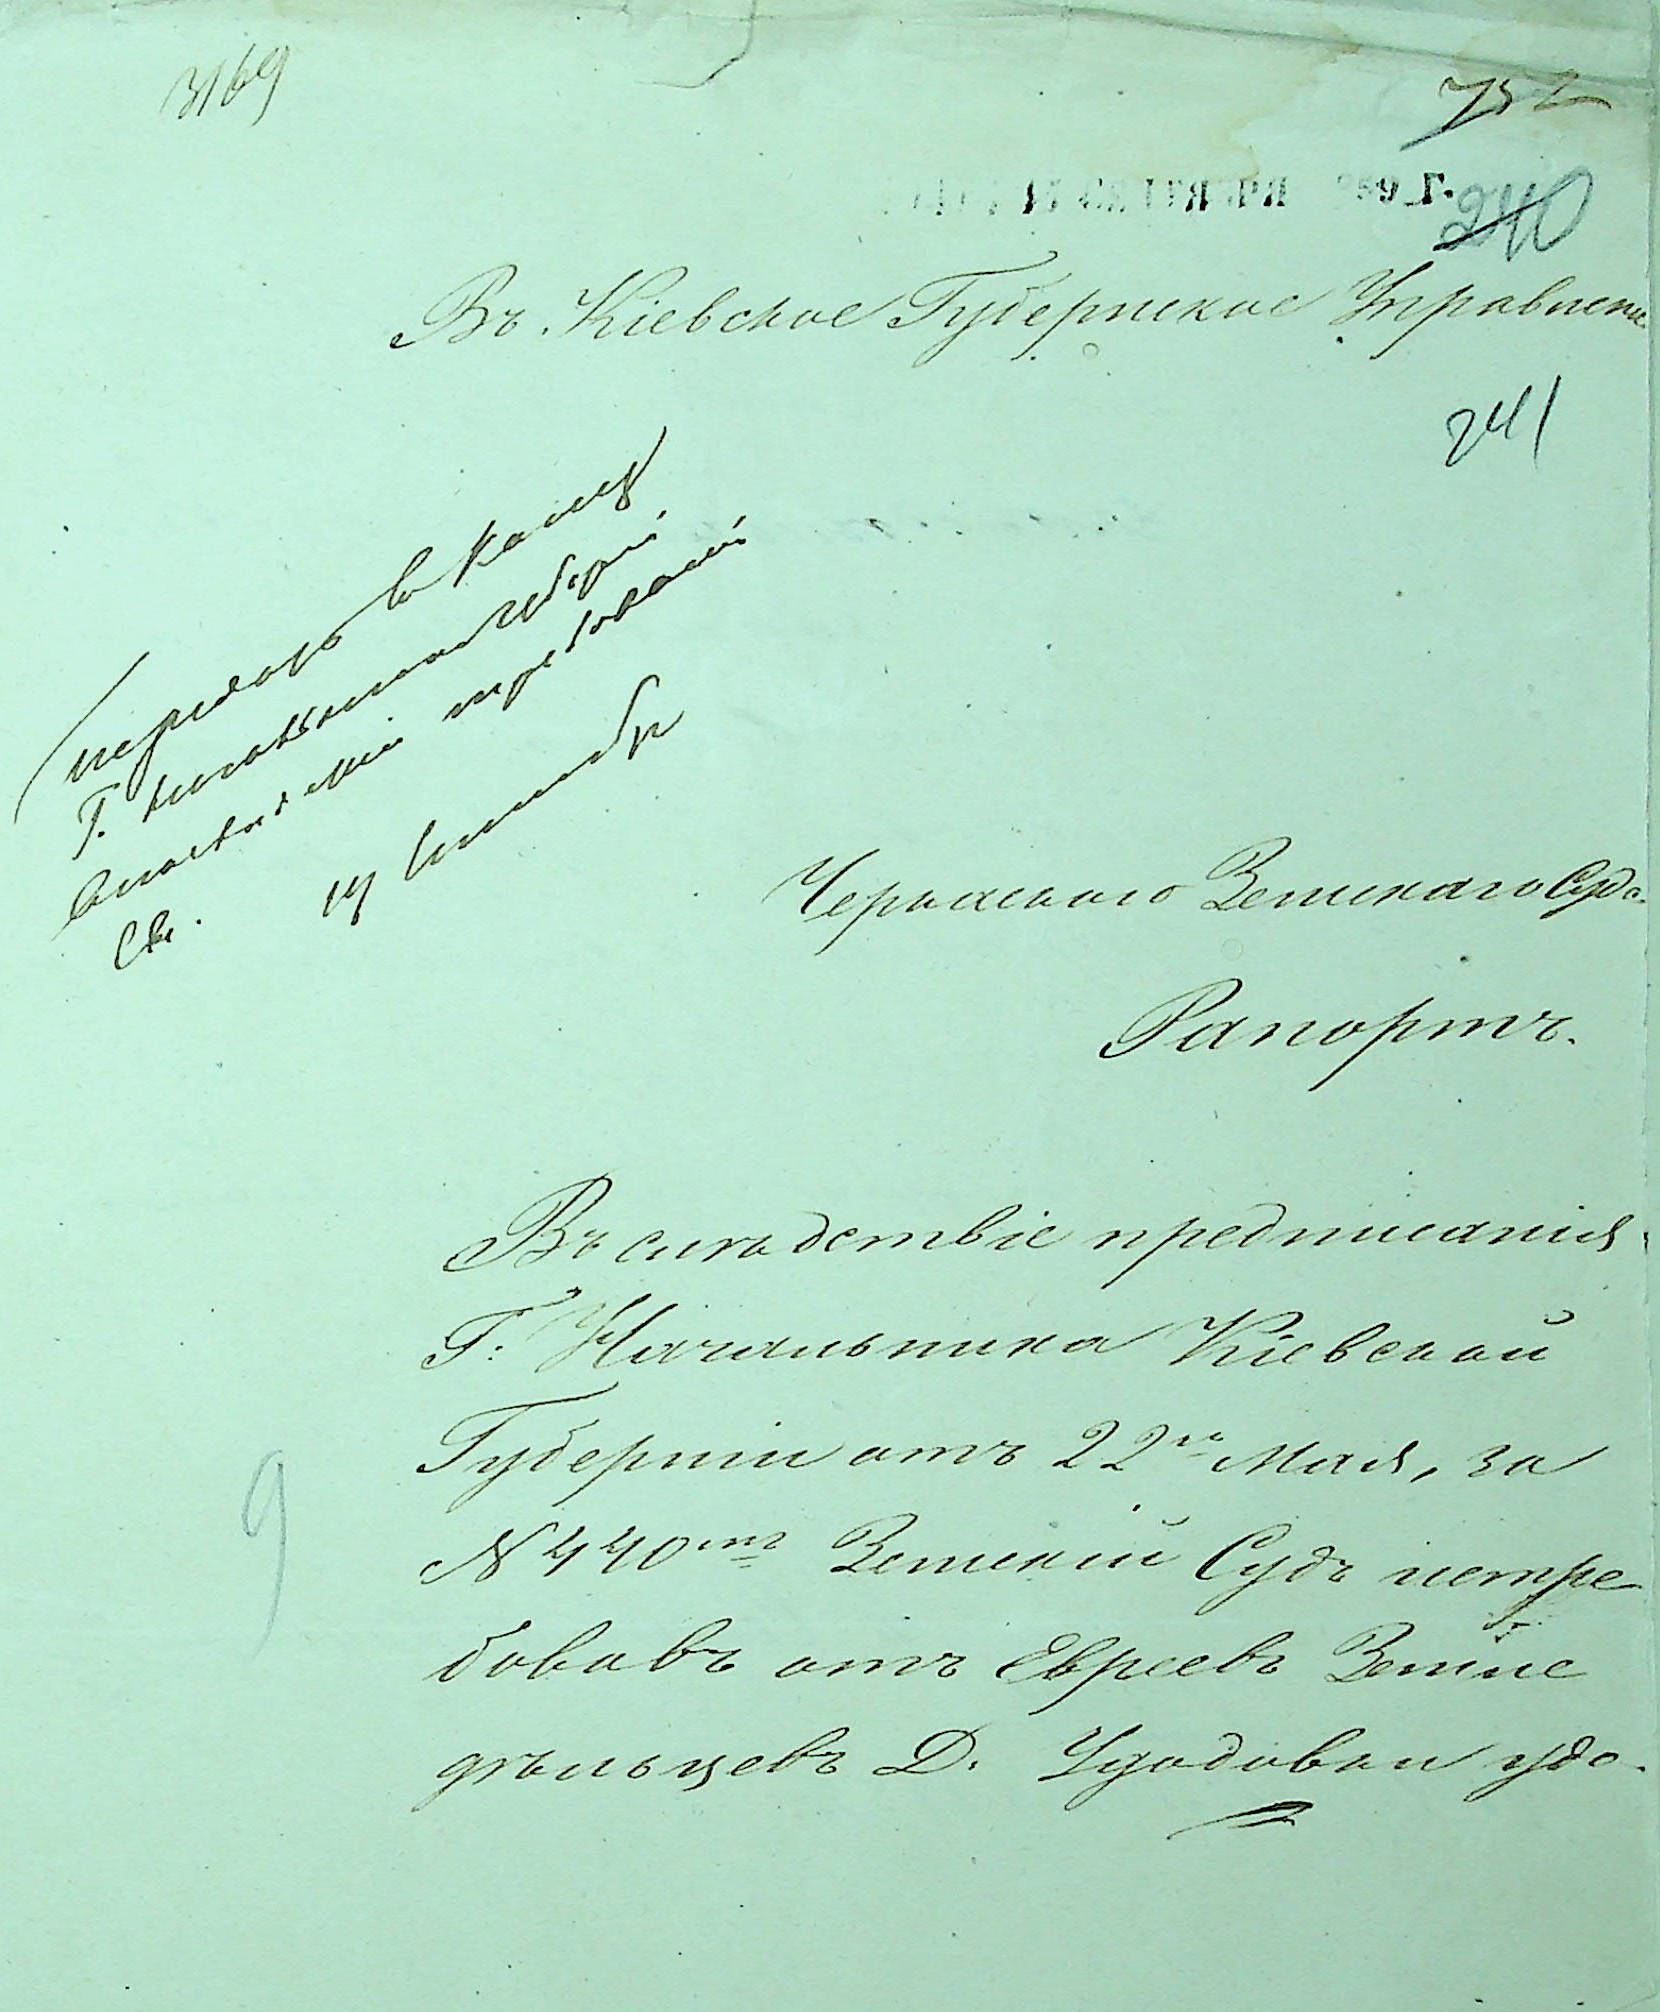 3169
752
240
Въ Кіевское Губернское Управлені
241
передать в Канц
Г. Начальника губерніи,
требованій
Черкаского Земскаго Суда.
Рапортъ.
Въ слѣдствіе предписанія
Г: Начальника Кіевской
Губерніи отъ 22го Мая, за
№ 440мъ Земскій Судъ истре
бовавъ отъ Евреевъ Земле
дѣльцевъ Д. Удодовки удо-
9